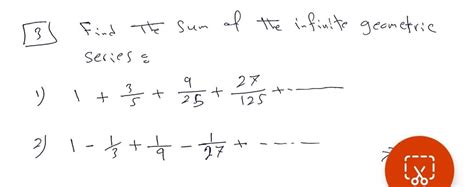 [3] Find the sum of the infinite geometric
series :
1) 1 + 3/5 + 9/25 + 27/125 + ------
2) 1 - 1/3 + 1/9 - 1/27 + - - - -